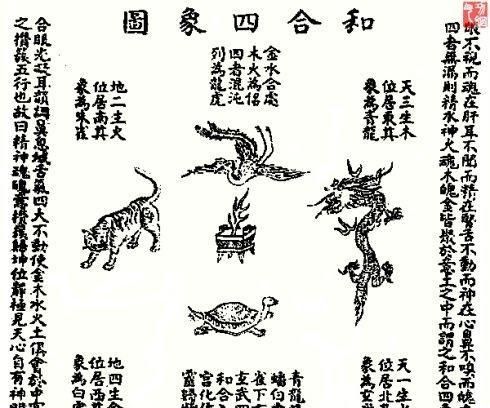 和合四象圖
眼不視而魂在肝耳不聞而精在腎舌不動而神在心鼻不嗅而魄
四者無漏則精水神火魂木魄金皆聚於意土之中而謂之和合四
天三生木
位居東其
象為青龍
金水合處
木火為侶
四者混沌
列為龍虎
地二生火
位居南其
象為朱雀
天一生
位居北
象為玄
青龍
雀下
玄武四
和合
宮化
地四生金
位居西
象為白
合眼光凝耳韻調鼻息緘舌氣四大不動使金木水火土俱會於中
之攢簇五行也故曰精神魂魄意攢簇歸坤位靜極見天心自有神明